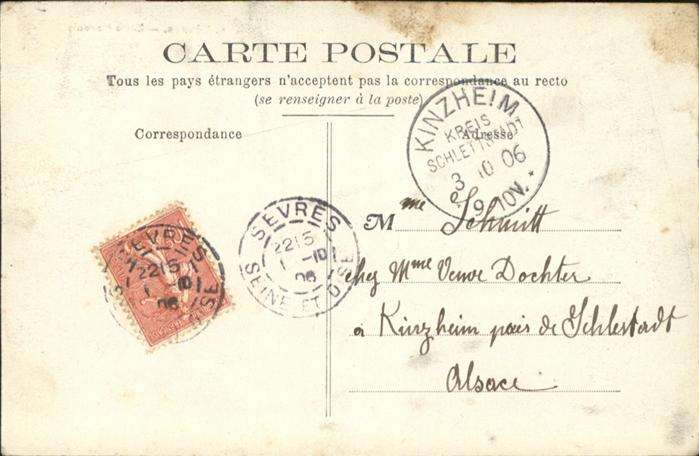 CARTE POSTALE
Tous les pays étrangers n'acceptent pas la correspondance au recto
(se renseigner à la poste)
Correspondance
Adresse
KINZHEIM
KREIS
SCHLETTSTADT
3 10 06
9-10V.
SEVRES
22 15
1 -10
06
SEINE ET OISE
SEVRES
22 15
1 -10
06
OISE
Mme Schmitt
chez Mme Veuve Dochter
a Kinzheim près de Schlestadt
Alsace